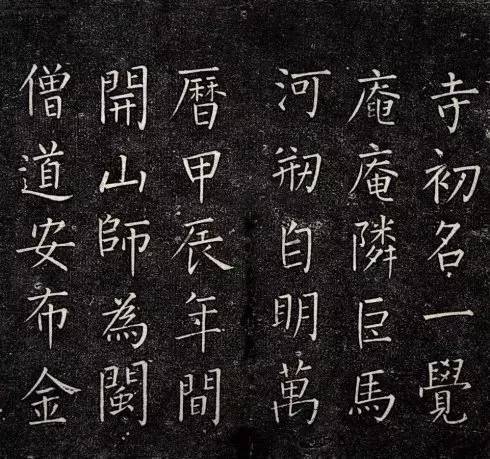 寺初名一覺
庵庵隣巨馬
河刱自明萬
曆甲辰年間
開山師為閩
僧道安布金